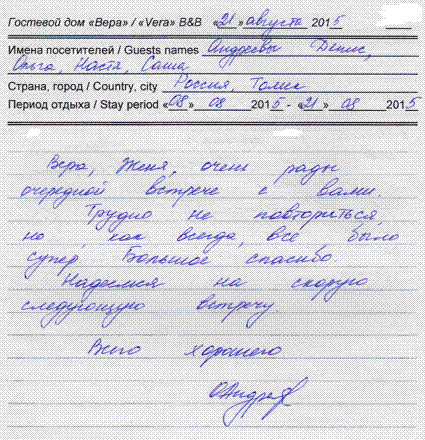 Гостевой дом «Вера» / «Vera» B&B «21» августа 2015
Имена посетителей / Guests names Андреевы Денис,
Ольга, Настя, Саша
Страна, город / Country, city Россия, Томск
Период отдыха / Stay period «08» 08 2015 - «21» 08 2015
Вера, Женя, очень рады
очередной встрече с вами.
Трудно не повториться,
но, как всегда, все было
супер. Большое спасибо.
Надеемся на скорую
следующую встречу.
Всего хорошего
ОАндре